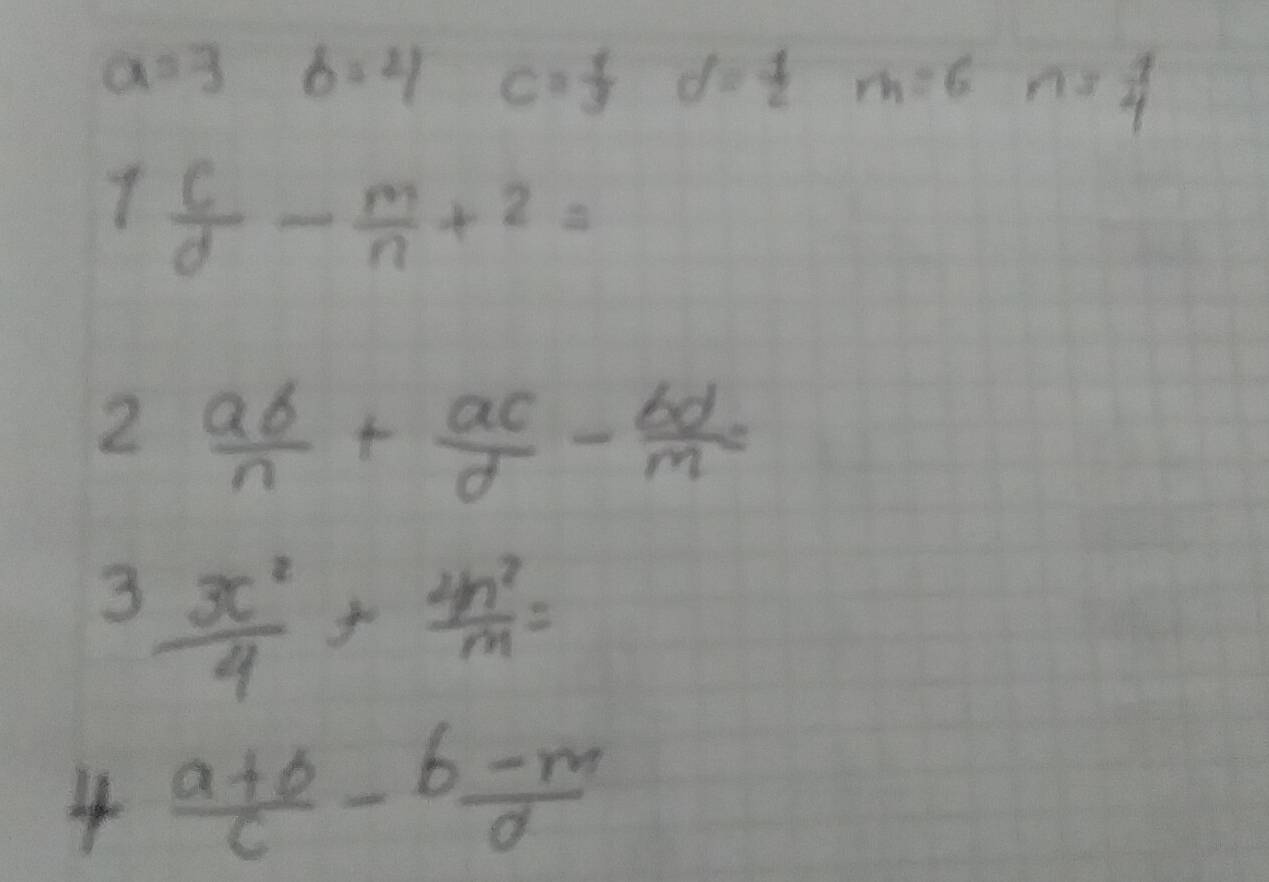 a=3 b=4 c=1/3 d=1/2 m=6 n=1/4
1 c/d - m/n + 2 =
2 ab/n + ac/d - bd/m =
3 3c²/4 + 4n²/m =
4 a+b/c - b-m/d